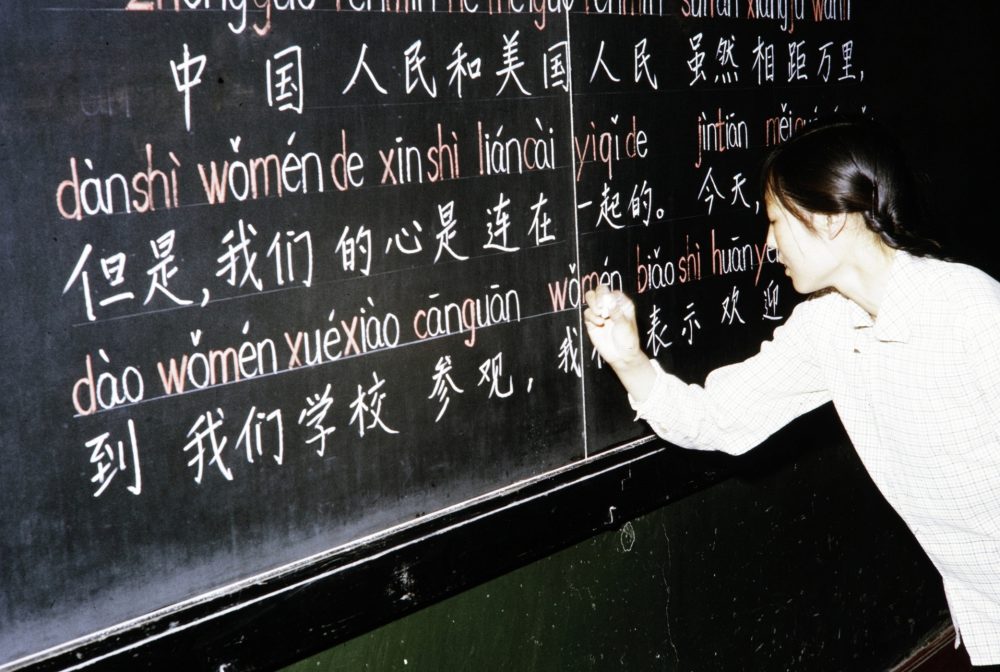 Zhongguo renmin he meiguo renmin suiran xiangju wanli
中国人民和美国人民 虽然相距万里,
dànshì wǒmén de xīnshì liáncài yìqǐ de jīntiān
但是,我们的心是连在一起的。今天,
dào wǒmén xuéxiào cānguān wǒmén biǎoshì
到我们学校参观,我们表示欢迎